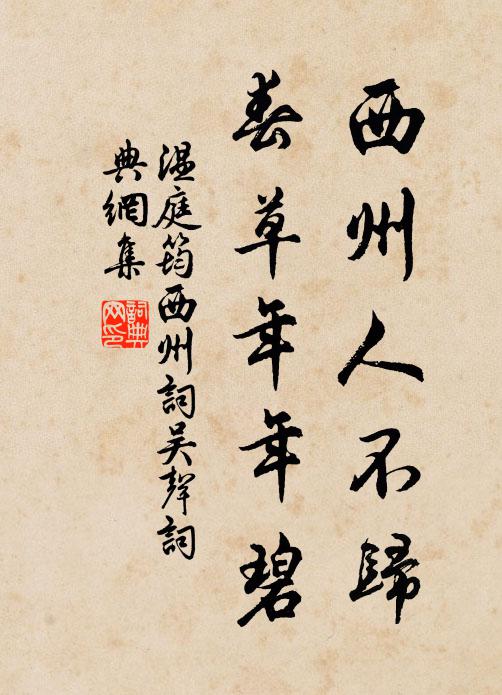 西州人不歸
春草年年碧
溫庭筠西州詞吳聲詞
典網集
詞典網印